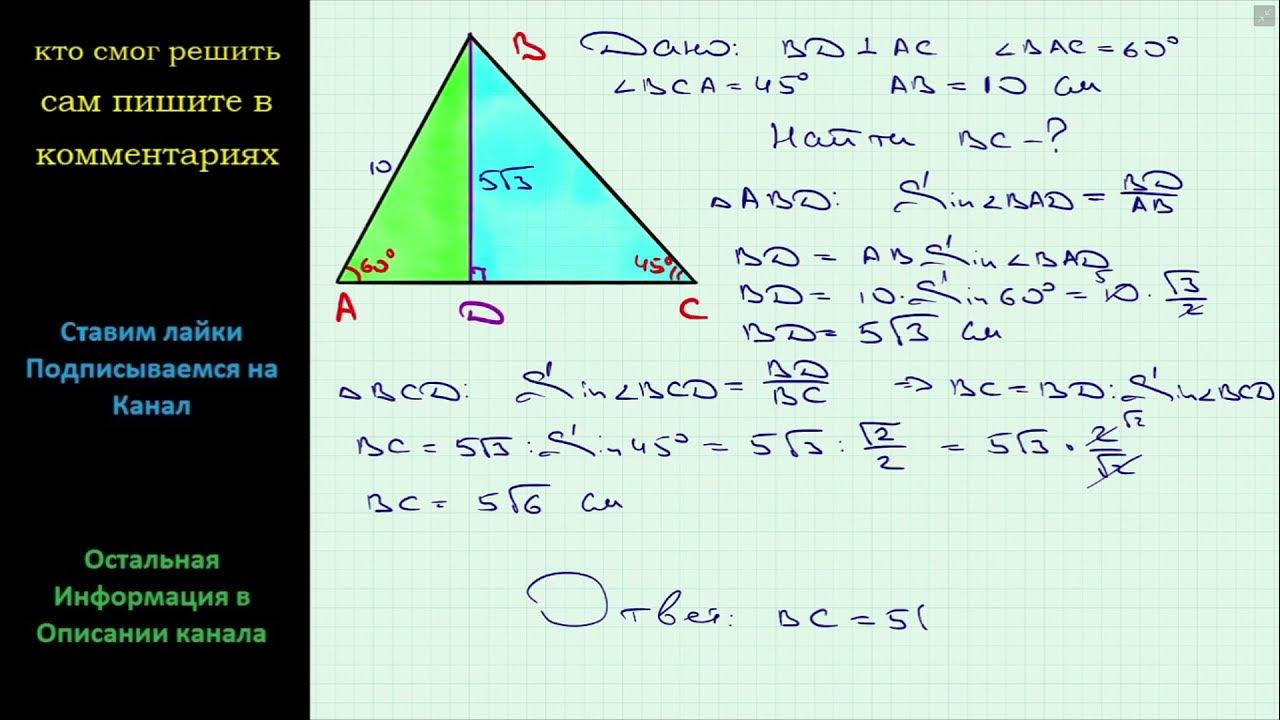 кто смог решить
сам пишите в
комментариях
Ставим лайки
Подписываемся на
Канал
Остальная
Информация в
Описании канала
B
10
5√3
60°
45°
A
D
C
Дано: BD ⊥ AC ∠BAC = 60°
∠BCA = 45° AB = 10 см
Найти BC – ?
△ABD: Sin∠BAD = BD/AB
BD = AB Sin∠BAD
BD = 10 · Sin60° = 10 5 · √3/2
BD = 5√3 см
△BCD: Sin∠BCD = BD/BC ⇒ BC = BD : Sin∠BCD
BC = 5√3 : Sin45° = 5√3 : √2/2 = 5√3 · 2/√2 √2
BC = 5√6 см
Ответ: BC = 5(